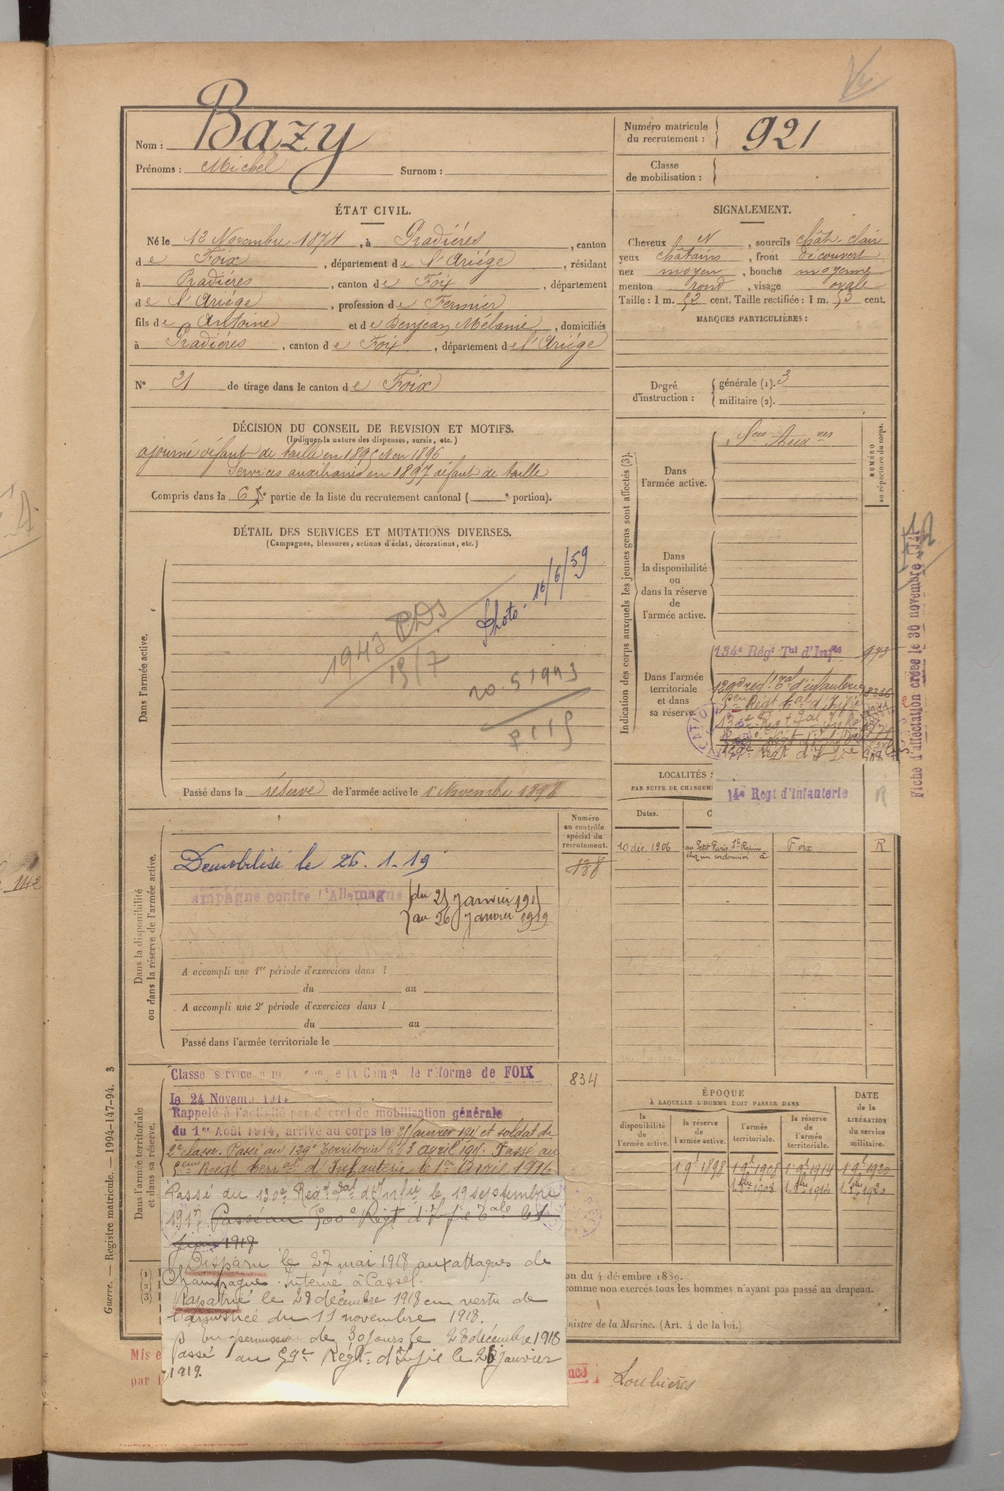 Nom : Bazy
Prénoms : Michel Surnom :
Numéro matricule
du recrutement : 921
Classe
de mobilisation :
ÉTAT CIVIL.
Né le 12 Novembre 1874, à Pradières, canton
de Foix, département de l'Ariège, résidant
à Pradières, canton de Foix, département
de l'Ariège, profession de Fermier
fils de Antoine et de Benjean Mélanie, domiciliés
à Pradières, canton de Foix, département de l'Ariège
N° 21 de tirage dans le canton de Foix
SIGNALEMENT.
Cheveux N, sourcils chât. clair
yeux châtains, front découvert
nez moyen, bouche moyenne
menton rond, visage ovale
Taille : 1 m. 52 cent. Taille rectifiée : 1 m. 53 cent.
MARQUES PARTICULIÈRES :
Degré
d'instruction :
générale (1). 3
militaire (2).
DÉCISION DU CONSEIL DE REVISION ET MOTIFS.
(Indiquer la nature des dispenses, sursis, etc.)
ajourné défaut de taille en 1895 et en 1896
Services auxiliaires en 1897 défaut de taille
Compris dans la 6e partie de la liste du recrutement cantonal ( e portion).
DÉTAIL DES SERVICES ET MUTATIONS DIVERSES.
(Campagnes, blessures, actions d'éclat, décorations, etc.)
Dans l'armée active.
Photo - 16/6/59
1943 CDS
19/7
20.5 1993
Passé dans la réserve de l'armée active le 1 Novembre 1898
Indication des corps auxquels les jeunes gens sont affectés (3).
NUMÉRO
au répertoire du corps.
Dans
l'armée active.
Sces Auxres
Dans
la disponibilité
ou
dans la réserve
de
l'armée active.
Dans l'armée
territoriale
et dans
sa réserve.
134e Régt Tal d'Infie 973
129e régt Tal d'infanterie
14e Régt d'Infanterie R
Fiche d'affectation créée le 30 novembre
LOCALITÉS
PAR SUITE DE CHANGEM
Dates.
10 déc. 1906 au Petit Paris Foix R
Numéro
au contrôle
spécial du
recrutement.
138
Dans la disponibilité
ou dans la réserve de l'armée active.
Démobilisé le 26.1.19
ampagne contre l'Allemagne du 25 Janvier 191
au 26 Janvier 1919
A accompli une 1re période d'exercices dans l
du au
A accompli une 2e période d'exercices dans l
du au
Passé dans l'armée territoriale le
Dans l'armée territoriale
et dans sa réserve.
834
Classe service de réforme de FOIX
le 24 Novemb 1914
Rappelé à l'activité par décret de mobilisation générale
du 1er Août 1914, arrivé au corps le 25 janvier 191 et soldat de
2e classe. Passé au 129e Territorial le 5 avril 191. Passé au
Régt Terral d'Infanterie le 1er Avril 1916
Passé au 130e Régt Tal d'Infie le 19 septembre
1917. Passé au 500e Régt d'Infie Tale le 1
1919
Disparu le 27 mai 1918 aux attaques de
Champagne. Interné à Cassel.
Rapatrié le 28 décembre 1918 en vertu de
l'armistice du 11 novembre 1918.
permission de 30 jours le 28 décembre 1918
Passé au 59e Régt d'Infie le 26 Janvier
1919.
ÉPOQUE
À LAQUELLE L'HOMME DOIT PASSER DANS
la
disponibilité
de
l'armée active.
la réserve
de
l'armée active.
l'armée
territoriale.
la réserve
de
l'armée
territoriale.
DATE
de la
LIBÉRATION
du service
militaire.
1 9bre 1898 1 9bre 1908 1 9bre 1914 1 9bre 1920
on du 4 décembre 1889.
comme non exercés tous les hommes n'ayant pas passé au drapeau.
nistre de la Marine. (Art. 4 de la loi.)
Mis e
par l
Loubières
Guerre. — Registre matricule. — 1994-147-94. 3